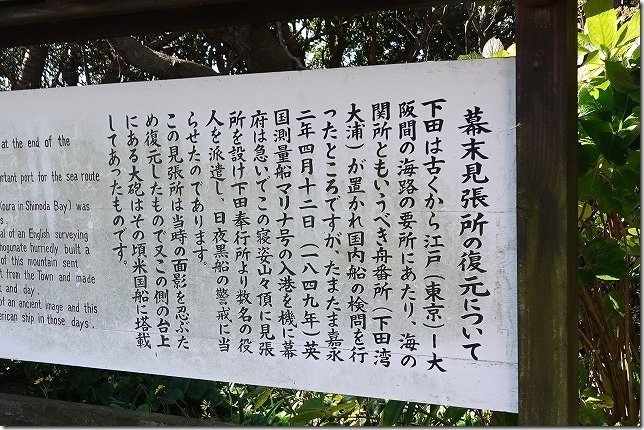 幕末見張所の復元について
下田は古くから江戸（東京）ー大
阪間の海路の要所にあたり、海の
関所ともいうべき舟番所（下田湾
大浦）が置かれ国内船の検問を行
ったところですが、たまたま嘉永
二年四月十二日（一八四九年）英
国測量船マリナ号の入港を機に幕
府は急いでこの寝姿山々頂に見張
所を設け下田奉行所より数名の役
人を派遣し、日夜黒船の警戒に当
らせたのであります。
この見張所は当時の面影を忍ぶた
め復元したもので又この側の台上
にある大砲はその頃米国船に塔載
してあったものです。
at the end of the
rtant port for the sea route
oura in Shimoda Bay) was
s.
al of an English surveying
hogunate hurriedly built a
of this mountain sent
t from the Town and made
t and day.
of an ancient image and this
erican ship in those days.